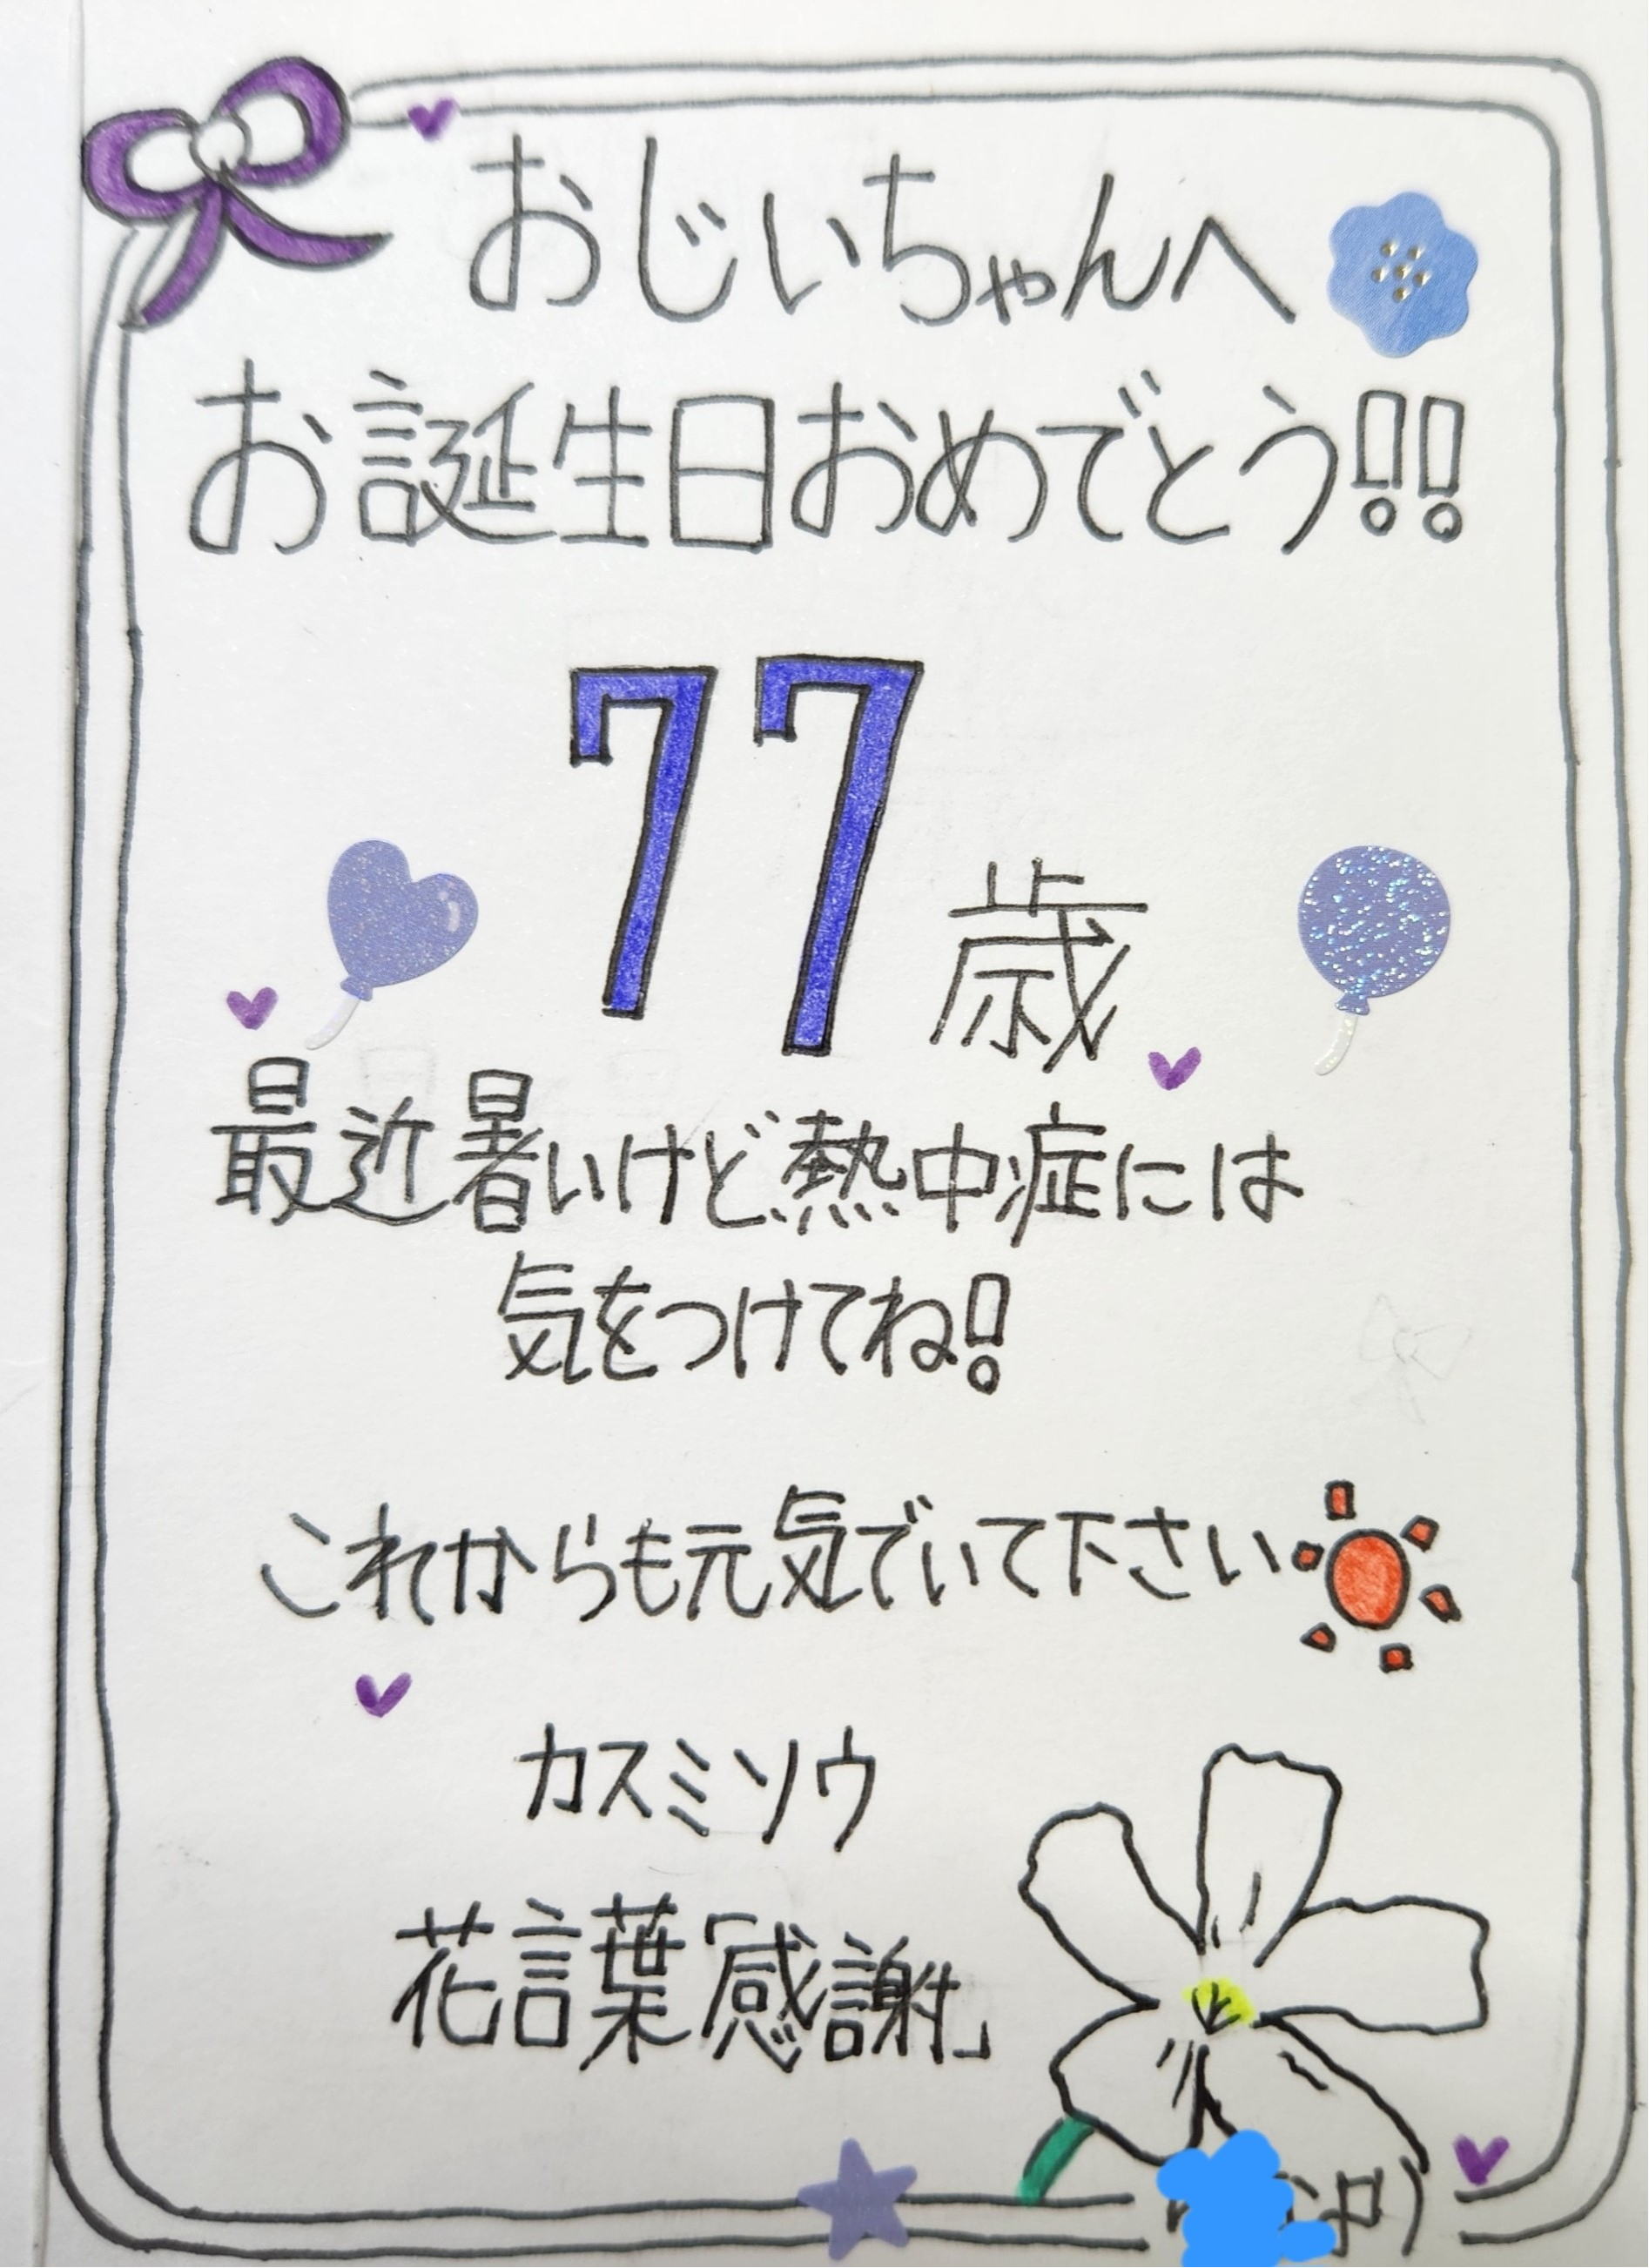 おじいちゃんへ
お誕生日おめでとう!!
77歳
最近暑いけど熱中症には
気をつけてね!
これからも元気でいて下さい
カスミソウ
花言葉「感謝」